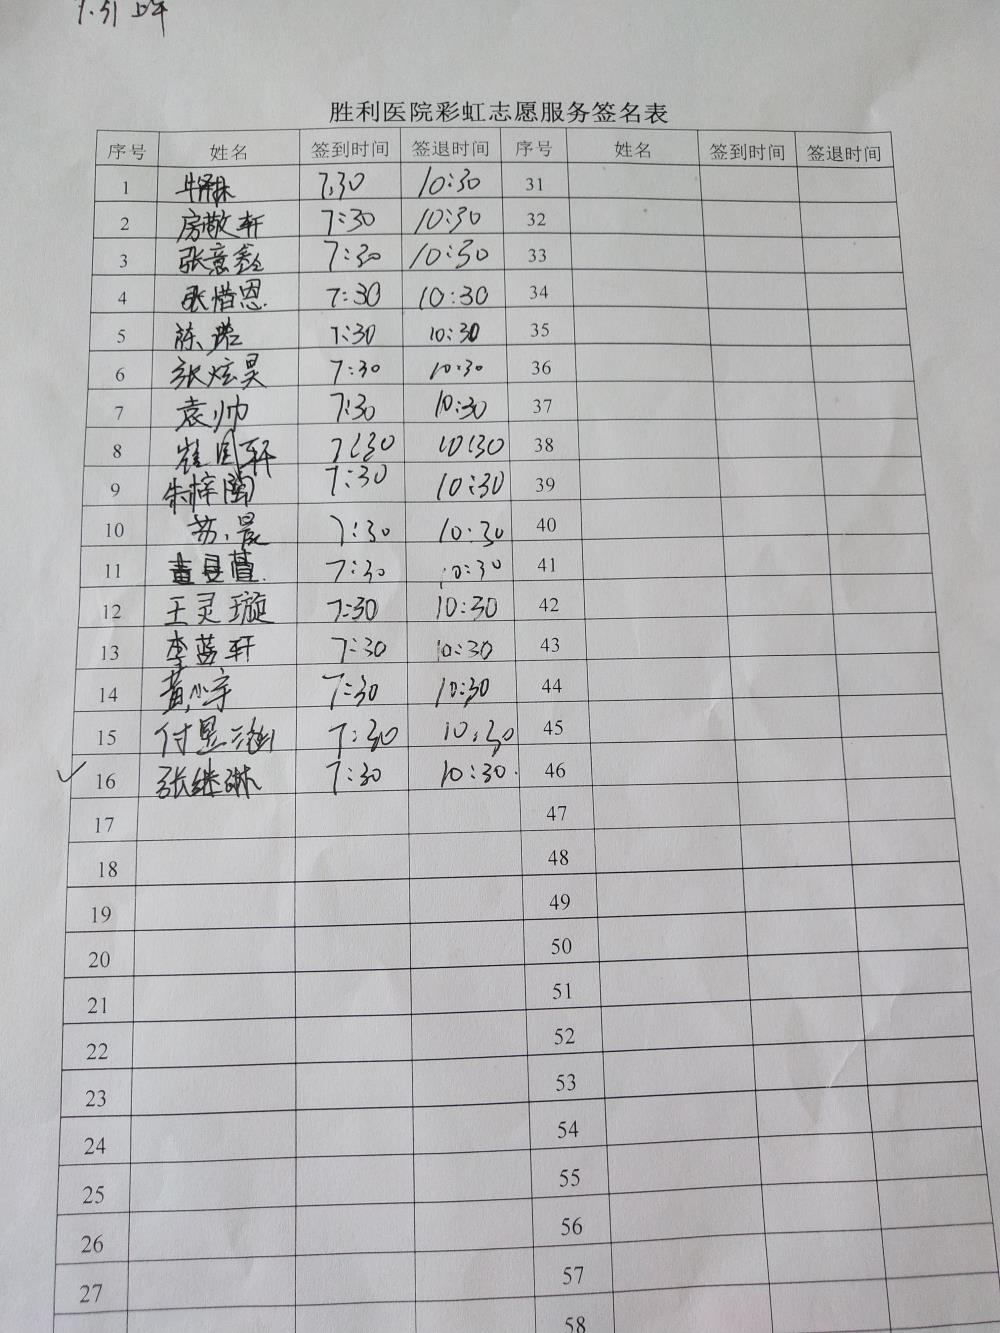 7.31 上午
胜利医院彩虹志愿服务签名表
序号 姓名 签到时间 签退时间 序号 姓名 签到时间 签退时间
1 7:30 10:30 31
2 房敬轩 7:30 10:30 32
3 张意鑫 7:30 10:30 33
4 张惜恩 7:30 10:30 34
5 陈诺 7:30 10:30 35
6 张炫昊 7:30 10:30 36
7 袁帅 7:30 10:30 37
8 崔国轩 7:30 10:30 38
9 朱梓闽 7:30 10:30 39
10 苏晨 7:30 10:30 40
11 7:30 10:30 41
12 王灵璇 7:30 10:30 42
13 李蓝轩 7:30 10:30 43
14 黄小宇 7:30 10:30 44
15 付昱涵 7:30 10:30 45
16 张继琳 7:30 10:30 46
17 47
18 48
19 49
20 50
21 51
22 52
23 53
24 54
25 55
26 56
27 57
58